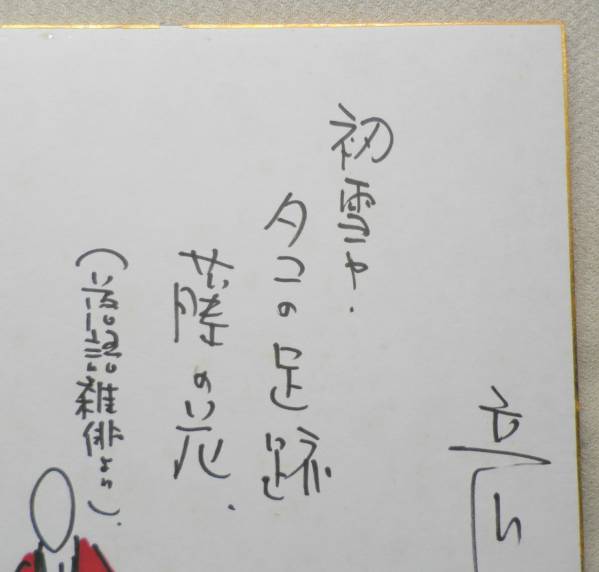 初雪や.
タコの足跡
藤の花.
(落語雑俳より).